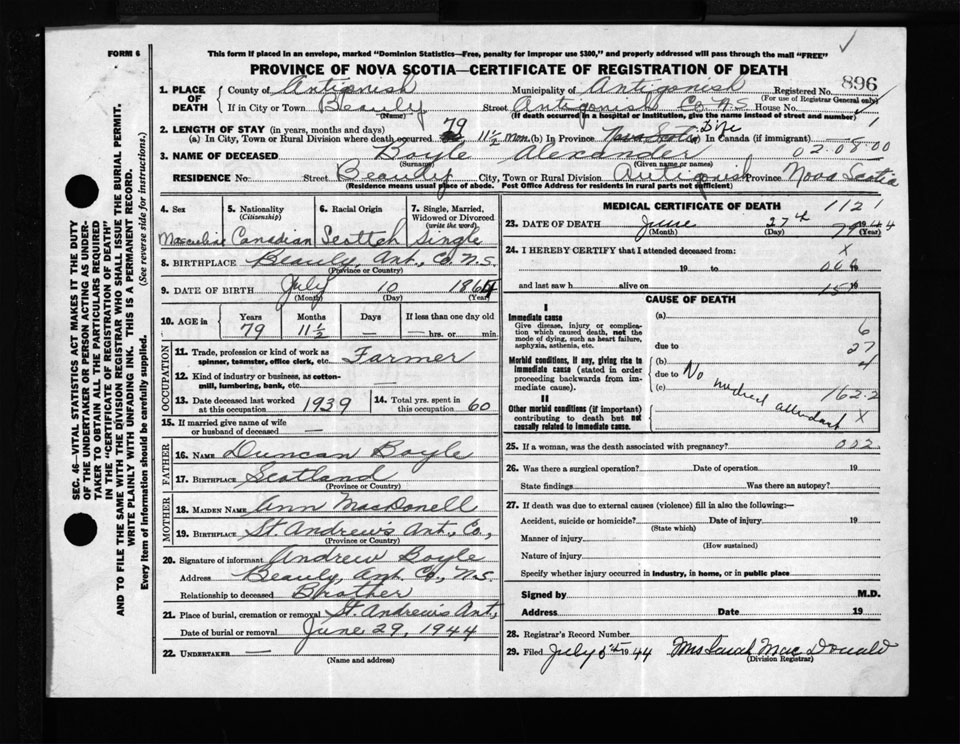 FORM 6
This form if placed in an envelope, marked "Dominion Statistics—Free, penalty for improper use $300," and properly addressed will pass through the mail "FREE"
PROVINCE OF NOVA SCOTIA—CERTIFICATE OF REGISTRATION OF DEATH
896
1. PLACE OF DEATH { County of Antigonish Municipality of Antigonish Registered No.
(For use of Registrar General only)
If in City or Town Beauly Street Antigonish Co N.S House No.
(Name) (If death occurred in a hospital or institution, give the name instead of street and number)
2. LENGTH OF STAY (in years, months and days)
(a) In City, Town or Rural Division where death occurred 79 11½ Mon. (b) In Province Nova Scotia Life In Canada (if immigrant) 1
3. NAME OF DECEASED Boyle Alexander 02.08.00
(Surname) (Given name or names)
RESIDENCE No. Street Beauly City, Town or Rural Division Antigonish Province Nova Scotia
(Residence means usual place of abode. Post Office Address for residents in rural parts not sufficient)
4. Sex 5. Nationality (Citizenship) 6. Racial Origin 7. Single, Married, Widowed or Divorced (write the word)
Masculine Canadian Scottch Single
8. BIRTHPLACE Beauly, Ant., Co. N.S.
(Province or Country)
9. DATE OF BIRTH July 10 1864
(Month) (Day) (Year)
10. AGE in Years Months Days If less than one day old
79 11½ — —hrs. or min.
OCCUPATION
11. Trade, profession or kind of work as spinner, teamster, office clerk, etc. Farmer
12. Kind of industry or business, as cotton-mill, lumbering, bank, etc. —
13. Date deceased last worked at this occupation 1939 14. Total yrs. spent in this occupation 60
15. If married give name of wife or husband of deceased —
FATHER
16. NAME Duncan Boyle
17. BIRTHPLACE Scotland
(Province or Country)
MOTHER
18. MAIDEN NAME Ann MacDonell
19. BIRTHPLACE St. Andrew's Ant., Co.,
(Province or Country)
20. Signature of informant Andrew Boyle
Address Beauly, Ant. Co., N.S.
Relationship to deceased Brother
21. Place of burial, cremation or removal St. Andrew's Ant,
Date of burial or removal June 29, 1944
22. UNDERTAKER —
(Name and address)
MEDICAL CERTIFICATE OF DEATH 112 1
23. DATE OF DEATH June 27th 1944
(Month) (Day) (Year)
79
24. I HEREBY CERTIFY that I attended deceased from: X
19 to
last saw h alive on 19
CAUSE OF DEATH
I
Immediate cause
Give disease, injury or complication which caused death, not the mode of dying, such as heart failure, asphyxia, asthenia, etc.
(a) 6
due to 27
Morbid conditions, if any, giving rise to immediate cause (stated in order proceeding backwards from immediate cause).
(b) 4
due to No medical attendant
(c) 162.2
II
Other morbid conditions (if important) contributing to death but not causally related to immediate cause.
X
25. If a woman, was the death associated with pregnancy?
26. Was there a surgical operation? Date of operation 19
State findings Was there an autopsy?
27. If death was due to external causes (violence) fill in also the following:—
Accident, suicide or homicide? Date of injury 19
(State which)
Manner of injury
(How sustained)
Nature of injury
Specify whether injury occurred in industry, in home, or in public place
Signed by M.D.
Address Date 19
28. Registrar's Record Number
29. Filed July 5th 1944 Mrs Sarah MacDonald
(Division Registrar)
SEC. 46—VITAL STATISTICS ACT MAKES IT THE DUTY
OF THE UNDERTAKER OR PERSON ACTING AS UNDER-
TAKER TO OBTAIN ALL THE PARTICULARS REQUIRED
IN THE "CERTIFICATE OF REGISTRATION OF DEATH"
AND TO FILE THE SAME WITH THE DIVISION REGISTRAR WHO SHALL ISSUE THE BURIAL PERMIT.
WRITE PLAINLY WITH UNFADING INK. THIS IS A PERMANENT RECORD.
Every item of information should be carefully supplied. (See reverse side for instructions.)